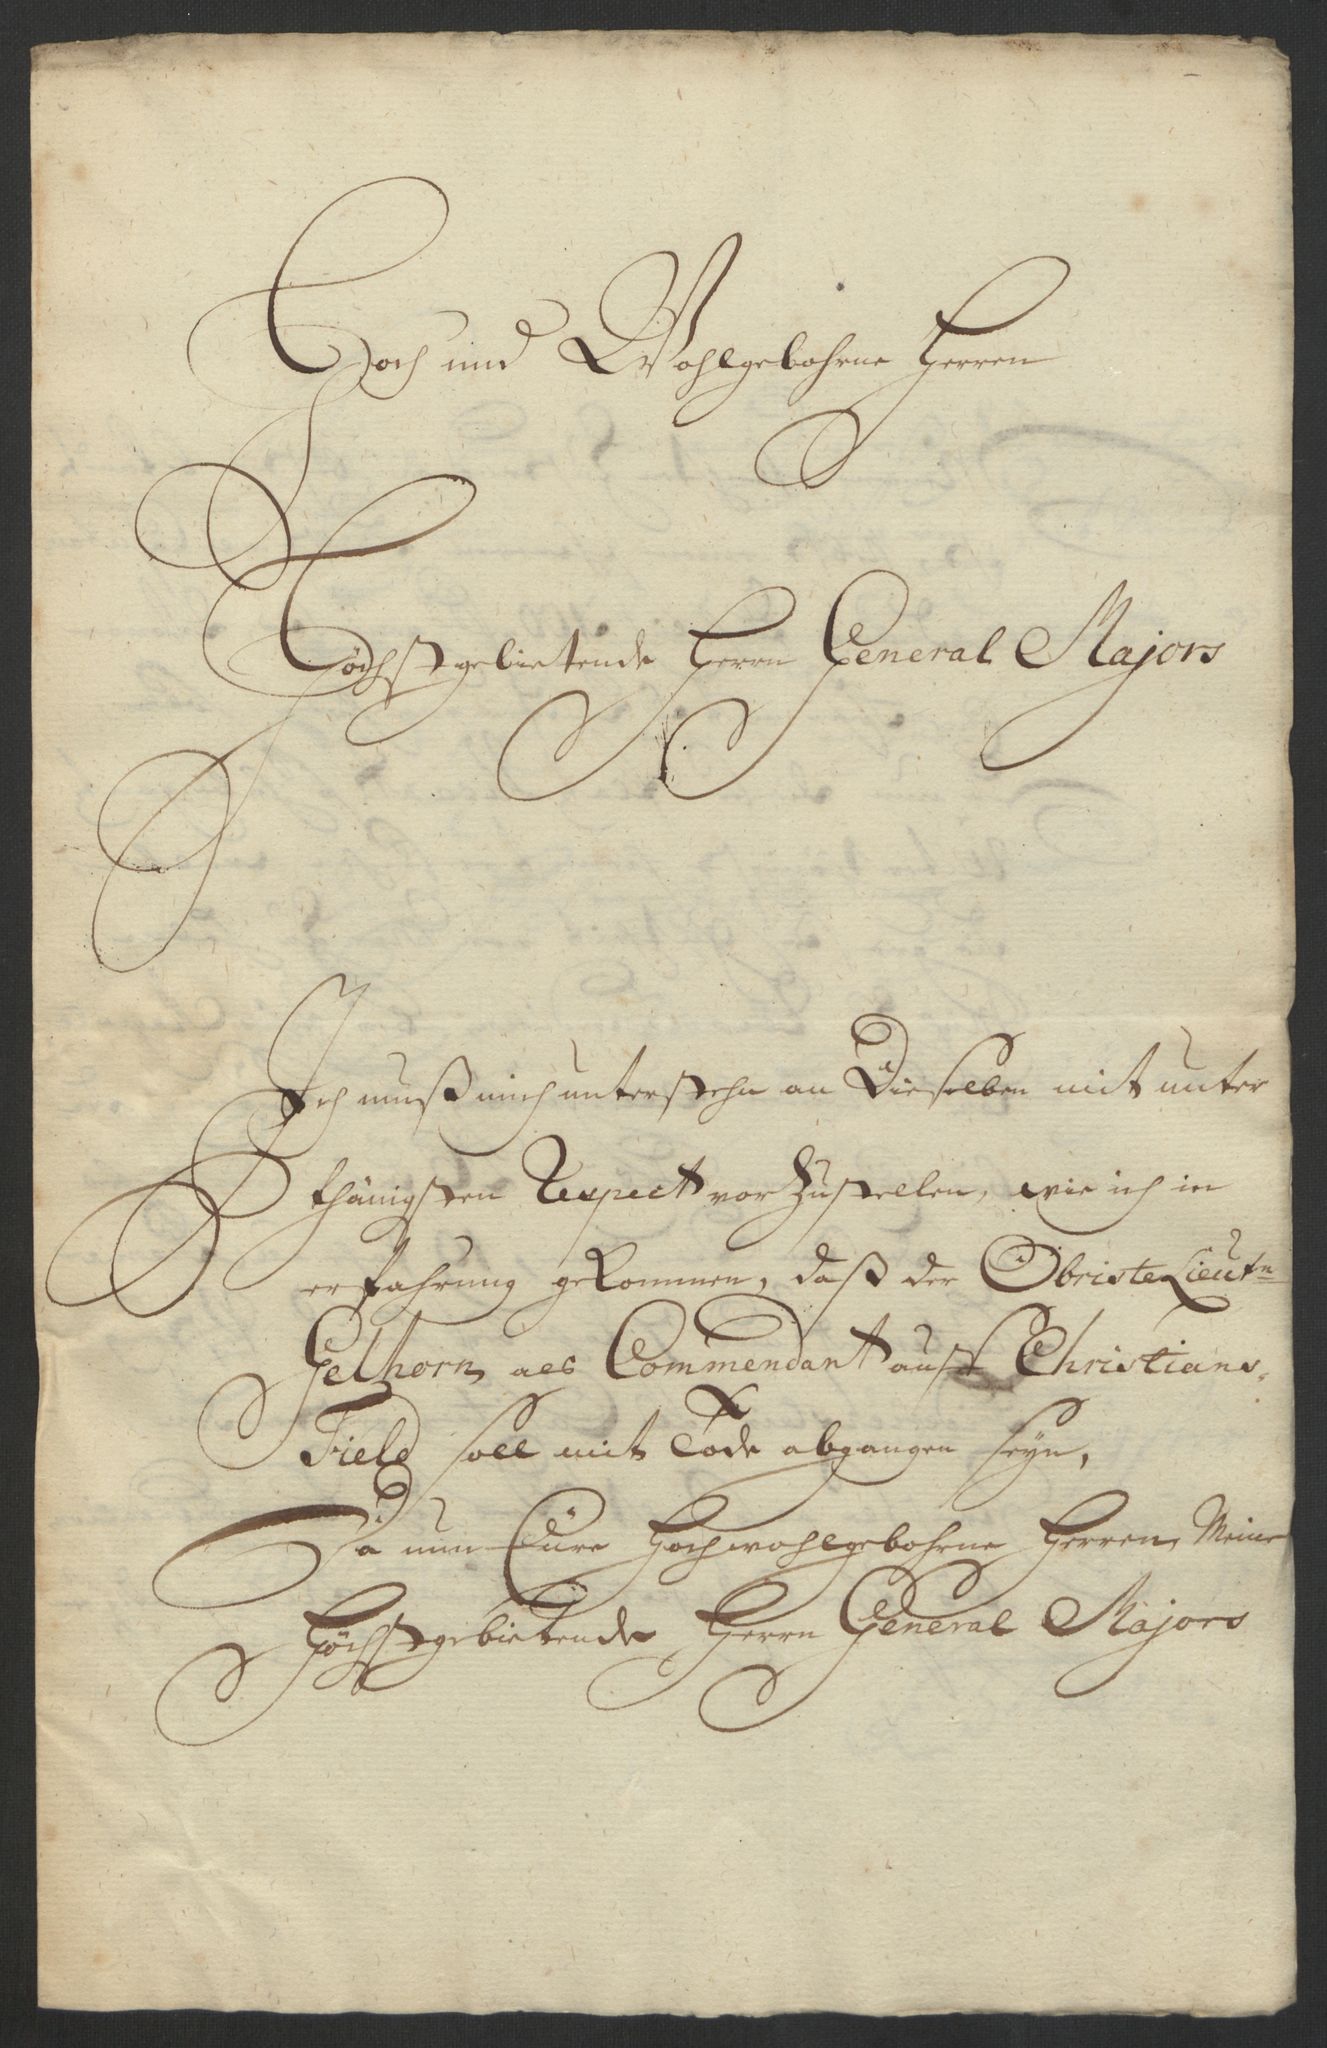 Hoch und Wohlgebohrne Herren
Höchstgebietende Herrn General Majors
Ich muß mich unterstehn an Dieselben mit unter
thänigsten Respect vor Zustellen, wie ich in
erfahrung gekommen, daß der Obriste Lieutn
Gelhorn als Commendant auff Christians-
Field soll mit Tode abgangen seyn,
Da nun Eüre Hochwohlgebohrne Herren, Meine
Höchstgebietende Herrn General Majors